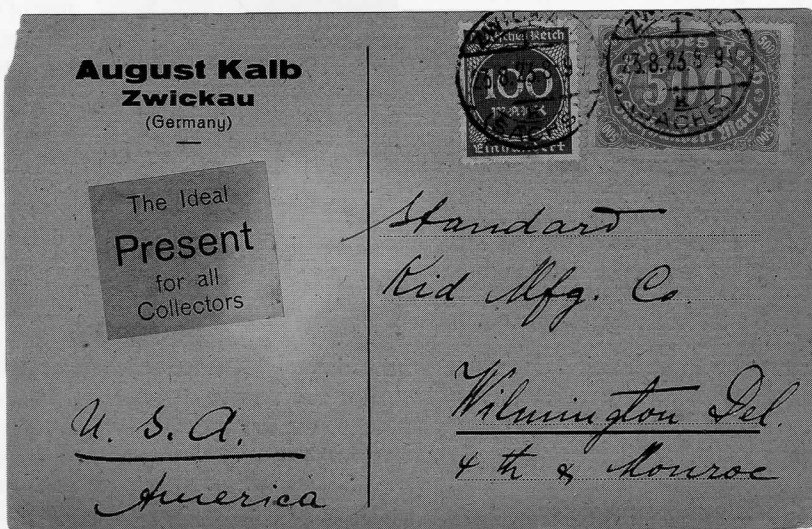 August Kalb
Zwickau
(Germany)
The Ideal
Present
for all
Collectors
U. S. A.
America
Deutsches Reich
100
MARK
Einhundert
500
23.8.23
23.8.23
Standard
Kid Mfg. Co.
Wilmington Del.
4 th & Monroe